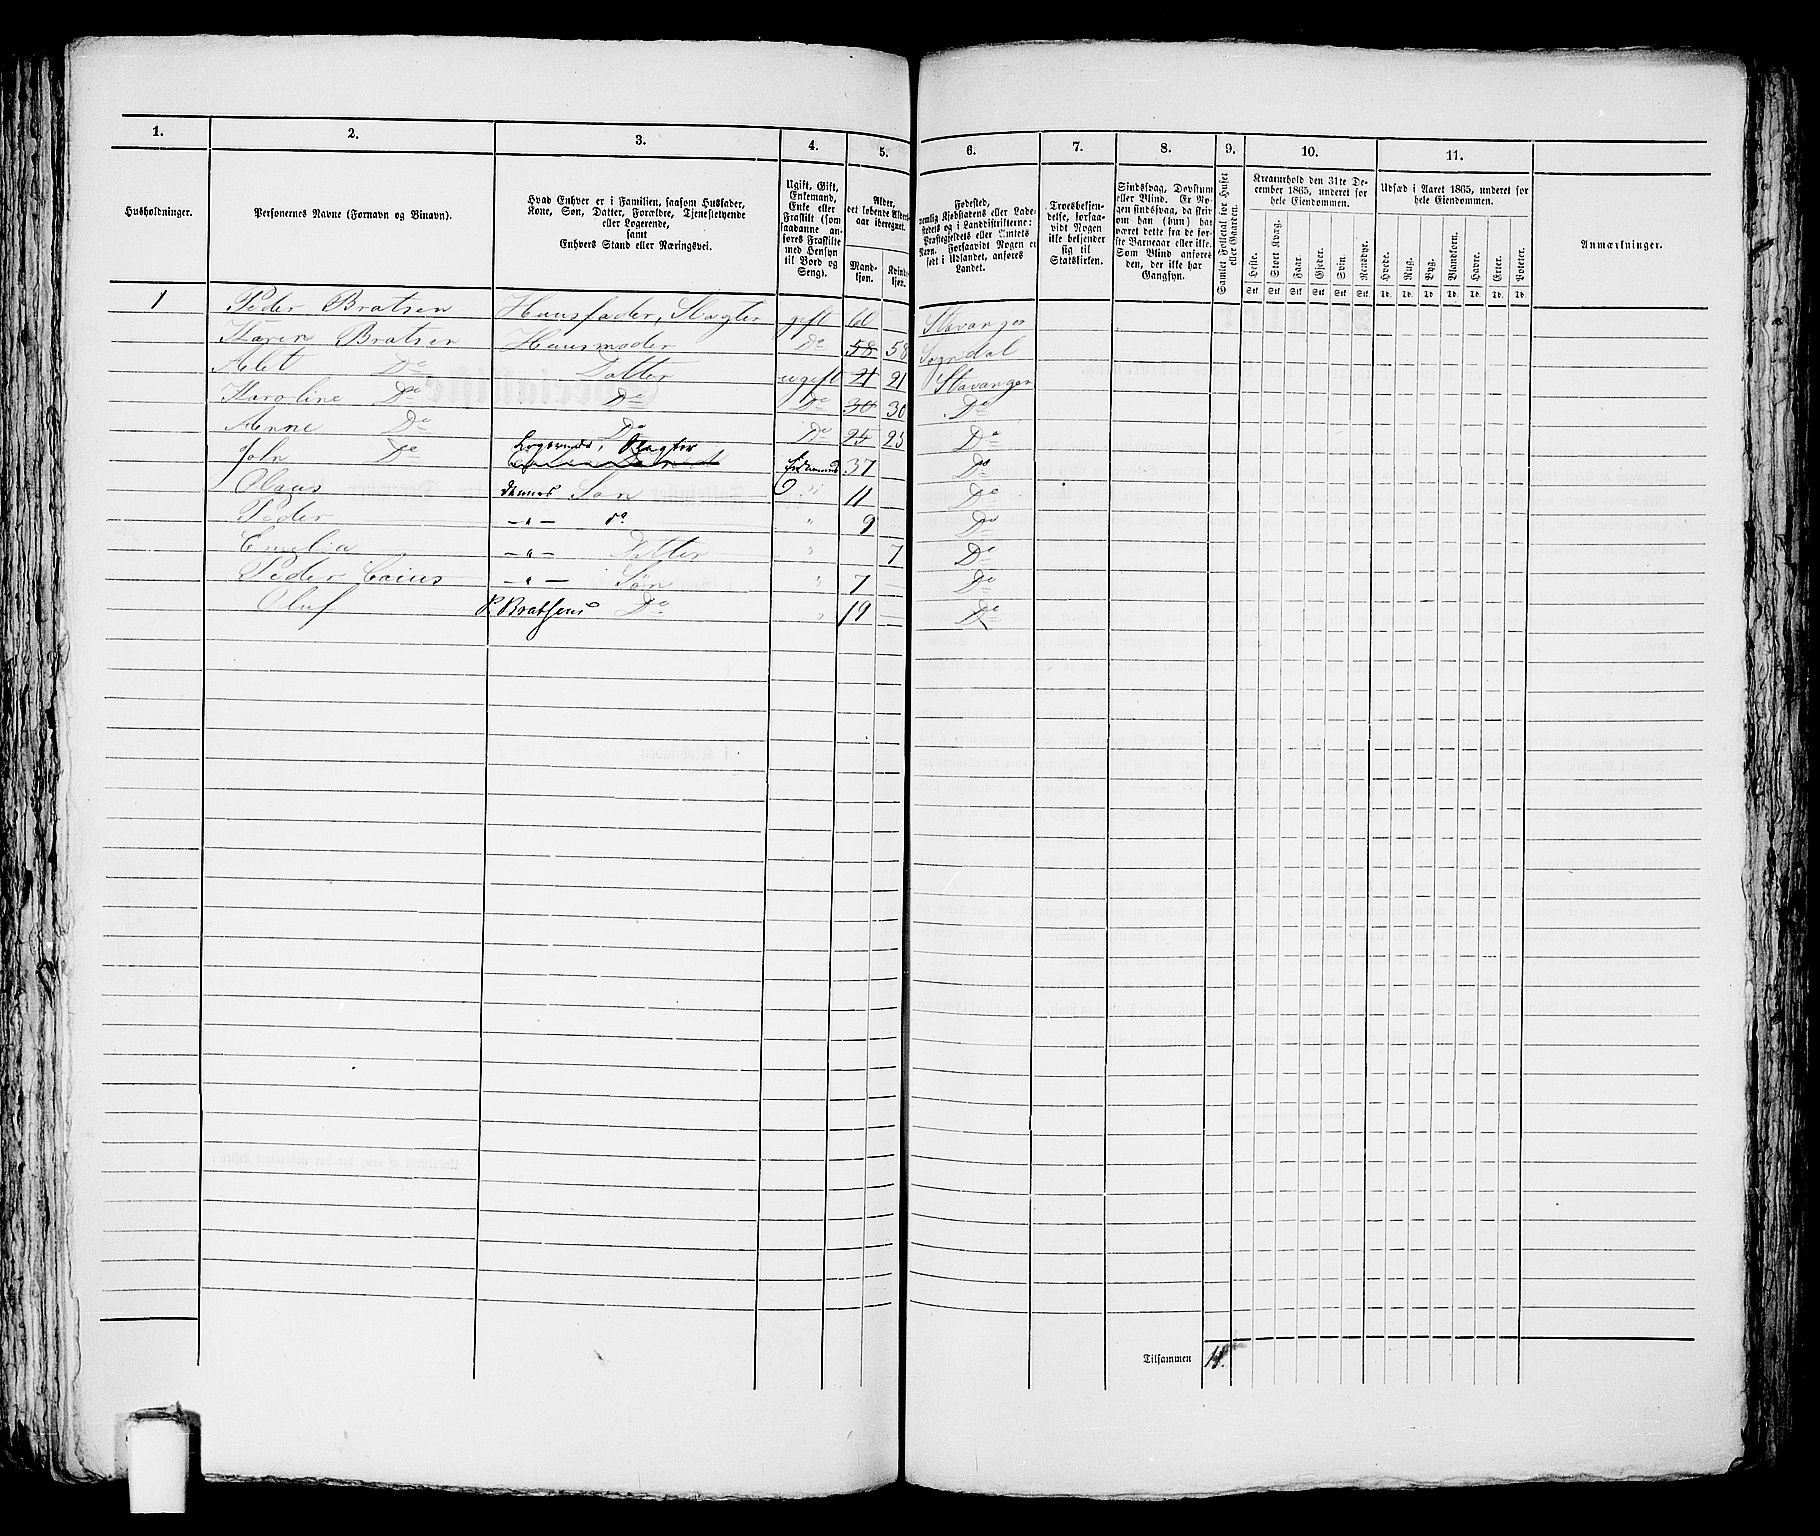 1. 2. 3. 4. 5. 6. 7. 8. 9. 10. 11.
Husholdninger.
Personernes Navne (Fornavn og Binavn).
Hvad Enhver er i Familien, saasom Husfader,
Kone, Søn, Datter, Forældre, Tjenestetyende
eller Logerende,
samt
Enhvers Stand eller Næringsvei.
Ugift, Gift,
Enkemand,
Enke eller
Fraskilt (som
saadanne an-
føres Fraskilte
med Hensyn
til Bord og
Seng).
Alder,
det løbende Alders-
aar iberegnet.
Mand-
kjøn.
Kvinde-
kjøn.
Fødested,
nemlig Kjøbstadens eller Lade-
stedets og i Landdistrikterne:
Præstegjeldets eller Amtets
Navn. Forsaavidt Nogen er
født i Udlandet, anføres
Landet.
Troesbekjen-
delse, forsaa-
vidt Nogen
ikke bekjender
sig til
Statskirken.
Sindssvag, Døvstum
eller Blind. Er No-
gen sindssvag, da skri-
ver han (hun) har
været dette fra de før-
ste Barneaar eller ikke.
Som Blind anføres
den, der ikke har
Gangsyn.
Samlet Folketal for Huset
eller Gaarden.
Kreaturhold den 31te De-
cember 1865, underet for
hele Eiendommen.
Heste. Stort Kvæg. Faar. Gjeder. Svin. Rensdyr.
Stk Stk Stk Stk Stk Stk
Udsæd i Aaret 1865, underet for
hele Eiendommen.
Hvede. Rug. Byg. Blandkorn. Havre. Erter. Poteter.
Td. Td. Td. Td. Td. Td. Td.
Anmærkninger.
1 Peder Bratsen Huusfader, Slagter gift 60 Stavanger
Karen Bratsen Huusmoder Do 58 58 Sogndal
Do Datter ugift 21 21 Stavanger
Karoline Do Do Do 30 30 Do
Anne Do Do Do 25 25 Do
John Do Logerende, Slagter Enkemand 37 Do
Olaus dennes Søn " 11 Do
Peder -"- do " 9 Do
Emelia -"- Datter " 7 Do
Peder Caius -"- Søn " 7 Do
Oluf P. Brathsens Do " 19 Do
Tilsammen 11.